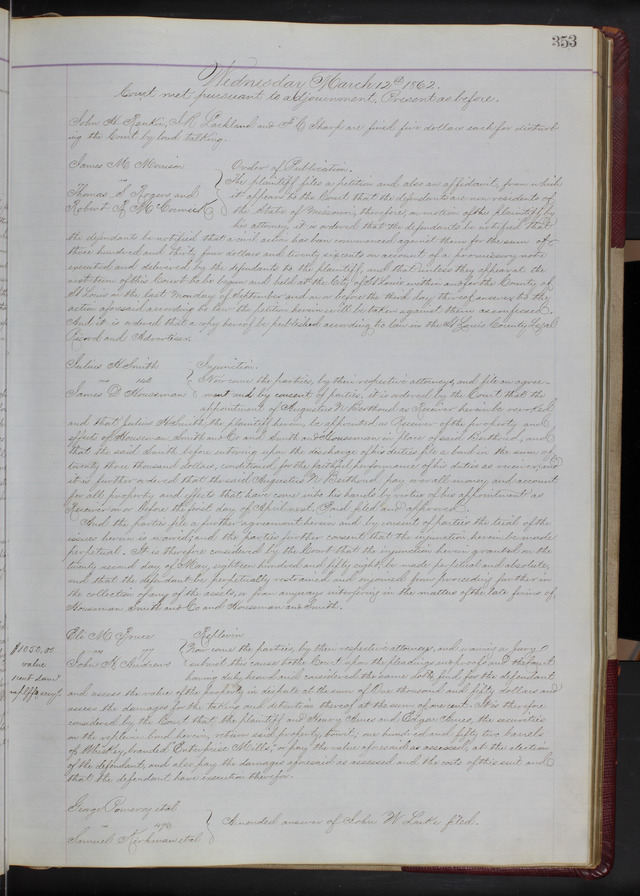 353
Wednesday March 12th 1862.
Court met pursuant to adjournment. Present as before.
John H. Rankin, and F C Sharp are fined five dollars each for disturb-
ing the Court by loud talking.
James M. Morrison Order of Publication.
vs The plaintiff files a petition and also an affidavit, from which
Thomas S Rogers and it appears to the Court that the defendants are non residents of
Robert R. McCormick the State of Missouri, therefore, on motion of the plaintiff by
his attorney, it is ordered that the defendants be notified that
the defendants be notified that a civil action has been commenced against them for the sum of
three hundred and thirty four dollars and twenty six cents on account of a promissory note
executed and delivered by the defendants to the plaintiff, and that unless they appear at the
next term of this Court to be begun and held at the City of St Louis within and for the County of
St Louis on the last Monday of September and on or before the third day thereof answer to the
action aforesaid according to law the petition herein will be taken against them as confessed.
And it is ordered that a copy hereof be published according to law in the St Louis County Legal
Record and Advertiser.
Julius H Smith Injunction.
vs Now come the parties, by their respective attorneys, and file an agree-
James D Houseman ment and by consent of parties, it is ordered by the Court that the
appointment of Augustus N Berthoud as Receiver herein be revoked
and that Julius H Smith, the plaintiff herein, be appointed as Receiver of the property and
effects of Houseman Smith and Co and Smith and Houseman in place of said Berthoud, and
that the said Smith before entering upon the discharge of his duties file a bond in the sum of
twenty three thousand dollars, conditioned for the faithful performance of his duties as receiver, and
it is further ordered that the said Augustus N Berthoud pay over all money and account
for all property and effects that have come into his hands by virtue of his appointment as
Receiver on or before the first day of April next. Bond filed and approved.
And the parties file a further agreement herein and by consent of parties the trial of the
issues herein is waived; and the parties further consent that the injunction herein be made
perpetual. It is therefore considered by the Court that the injunction herein granted on the
twenty second day of May, eighteen hundred and fifty eight, be made perpetual and absolute,
and that the defendant be perpetually restrained and enjoined from proceeding further in
the collection of any of the assets, or from anyways interfering in the matters of the late firms of
Houseman Smith and Co and Houseman and Smith.
Eli M Bruce Replevin
vs Now come the parties, by their respective attorneys, and waiving a jury
John H. Andrews submit this cause to the Court upon the pleadings and proofs and the Court
having duly heard and considered the same doth find for the defendant
$1050.00
value
1 cent dam'
and assess the value of the property in dispute at the sum of One thousand and fifty dollars and
assess the damages for the taking and detention thereof at the sum of one cent. It is therefore
considered by the Court that the plaintiff and Henry Ames and Edgar Ames, the securities
on the replevin bond herein, return said property, to wit, one hundred and fifty two barrels
of Whiskey, branded Enterprise Mills, or pay the value aforesaid as assessed, at the election
of the defendant, and also pay the damages aforesaid as assessed and the costs of this suit and
that the defendant have execution therefor.
George Pomeroy et al
vs Amended answer of John W Luke filed.
Samuel Kirkman et al